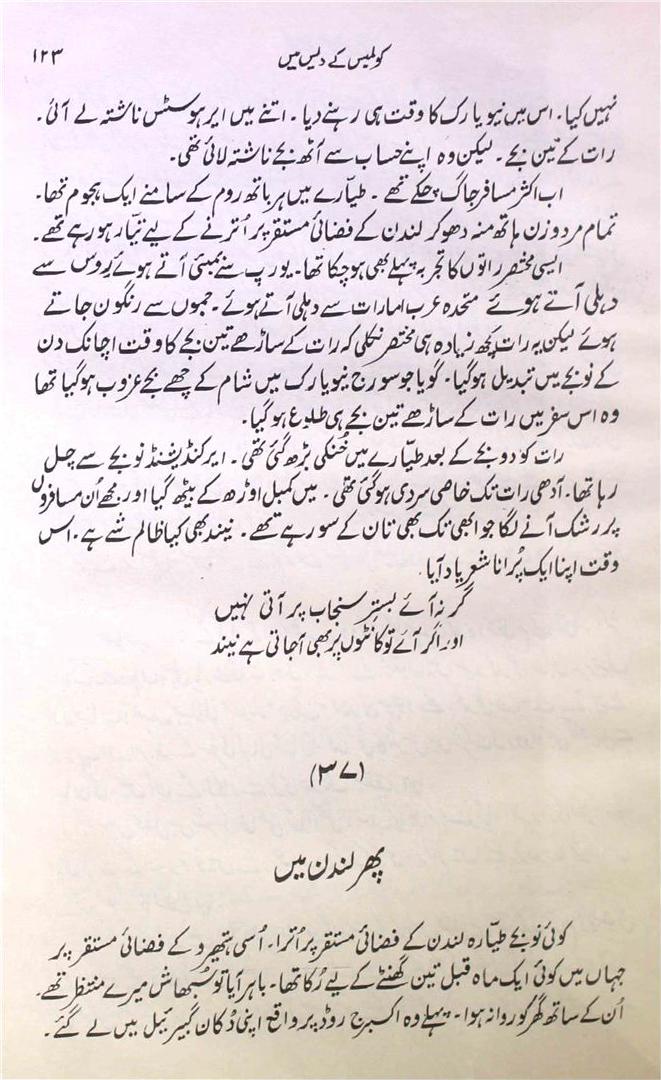 کولمبس کے دیس میں ۱۲۳
نہیں کیا۔ اس میں نیویارک کا وقت ہی رہنے دیا۔ اتنے میں ایر ہوسٹس ناشتہ لے آئی۔
رات کے تین بجے۔ لیکن وہ اپنے حساب سے آٹھ بجے ناشتہ لائی تھی۔
اب اکثر مسافر جاگ چکے تھے۔ طیّارے میں ہر باتھ روم کے سامنے ایک ہجوم تھا۔
تمام مرد و زن ہاتھ منہ دھو کر لندن کے فضائی مستقر پر اُترنے کے لیے تیّار ہو رہے تھے۔
ایسی مختصر راتوں کا تجربہ پہلے بھی ہو چکا تھا۔ یورپ سے بمبئی آتے ہوئے روس سے
دہلی آتے ہوئے متحدہ عرب امارات سے دہلی آتے ہوئے۔ جموں سے رنگون جاتے
ہوئے لیکن یہ رات کچھ زیادہ ہی مختصر نکلی کہ رات کے ساڑھے تین بجے کا وقت اچانک دن
کے نو بجے میں تبدیل ہو گیا۔ گویا جو سورج نیویارک میں شام کے چھے بجے غروب ہو گیا تھا
وہ اس سفر میں رات کے ساڑھے تین بجے ہی طلوع ہو گیا۔
رات کو دو بجے کے بعد طیّارے میں خُنکی بڑھ گئی تھی۔ ایرکنڈیشنڈ نو بجے سے چل
رہا تھا۔ آدھی رات تک خاصی سردی ہو گئی تھی۔ میں کمبل اوڑھ کے بیٹھ گیا اور مجھے اُن مسافروں
پر رشک آنے لگا جو ابھی تک بھی تان کے سو رہے تھے۔ نیند بھی کیا ظالم شے ہے۔ اس
وقت اپنا ایک پُرانا شعر یاد آیا۔
گر نہ آئے بسترِ سنجاب پر آتی نہیں
اور اگر آئے تو کانٹوں پر بھی آجاتی ہے نیند
(۳۷)
پھر لندن میں
کوئی نو بجے طیّارہ لندن کے فضائی مستقر پر اُترا۔ اُسی ہتھیرو کے فضائی مستقر پر
جہاں میں کوئی ایک ماہ قبل تین گھنٹے کے لیے رُکا تھا۔ باہر آیا تو سُبھاش میرے منتظر تھے۔
اُن کے ساتھ گھر کو روانہ ہوا۔ پہلے وہ اکسبرج روڈ پر واقع اپنی دُکان گیبرئیل میں لے گئے۔